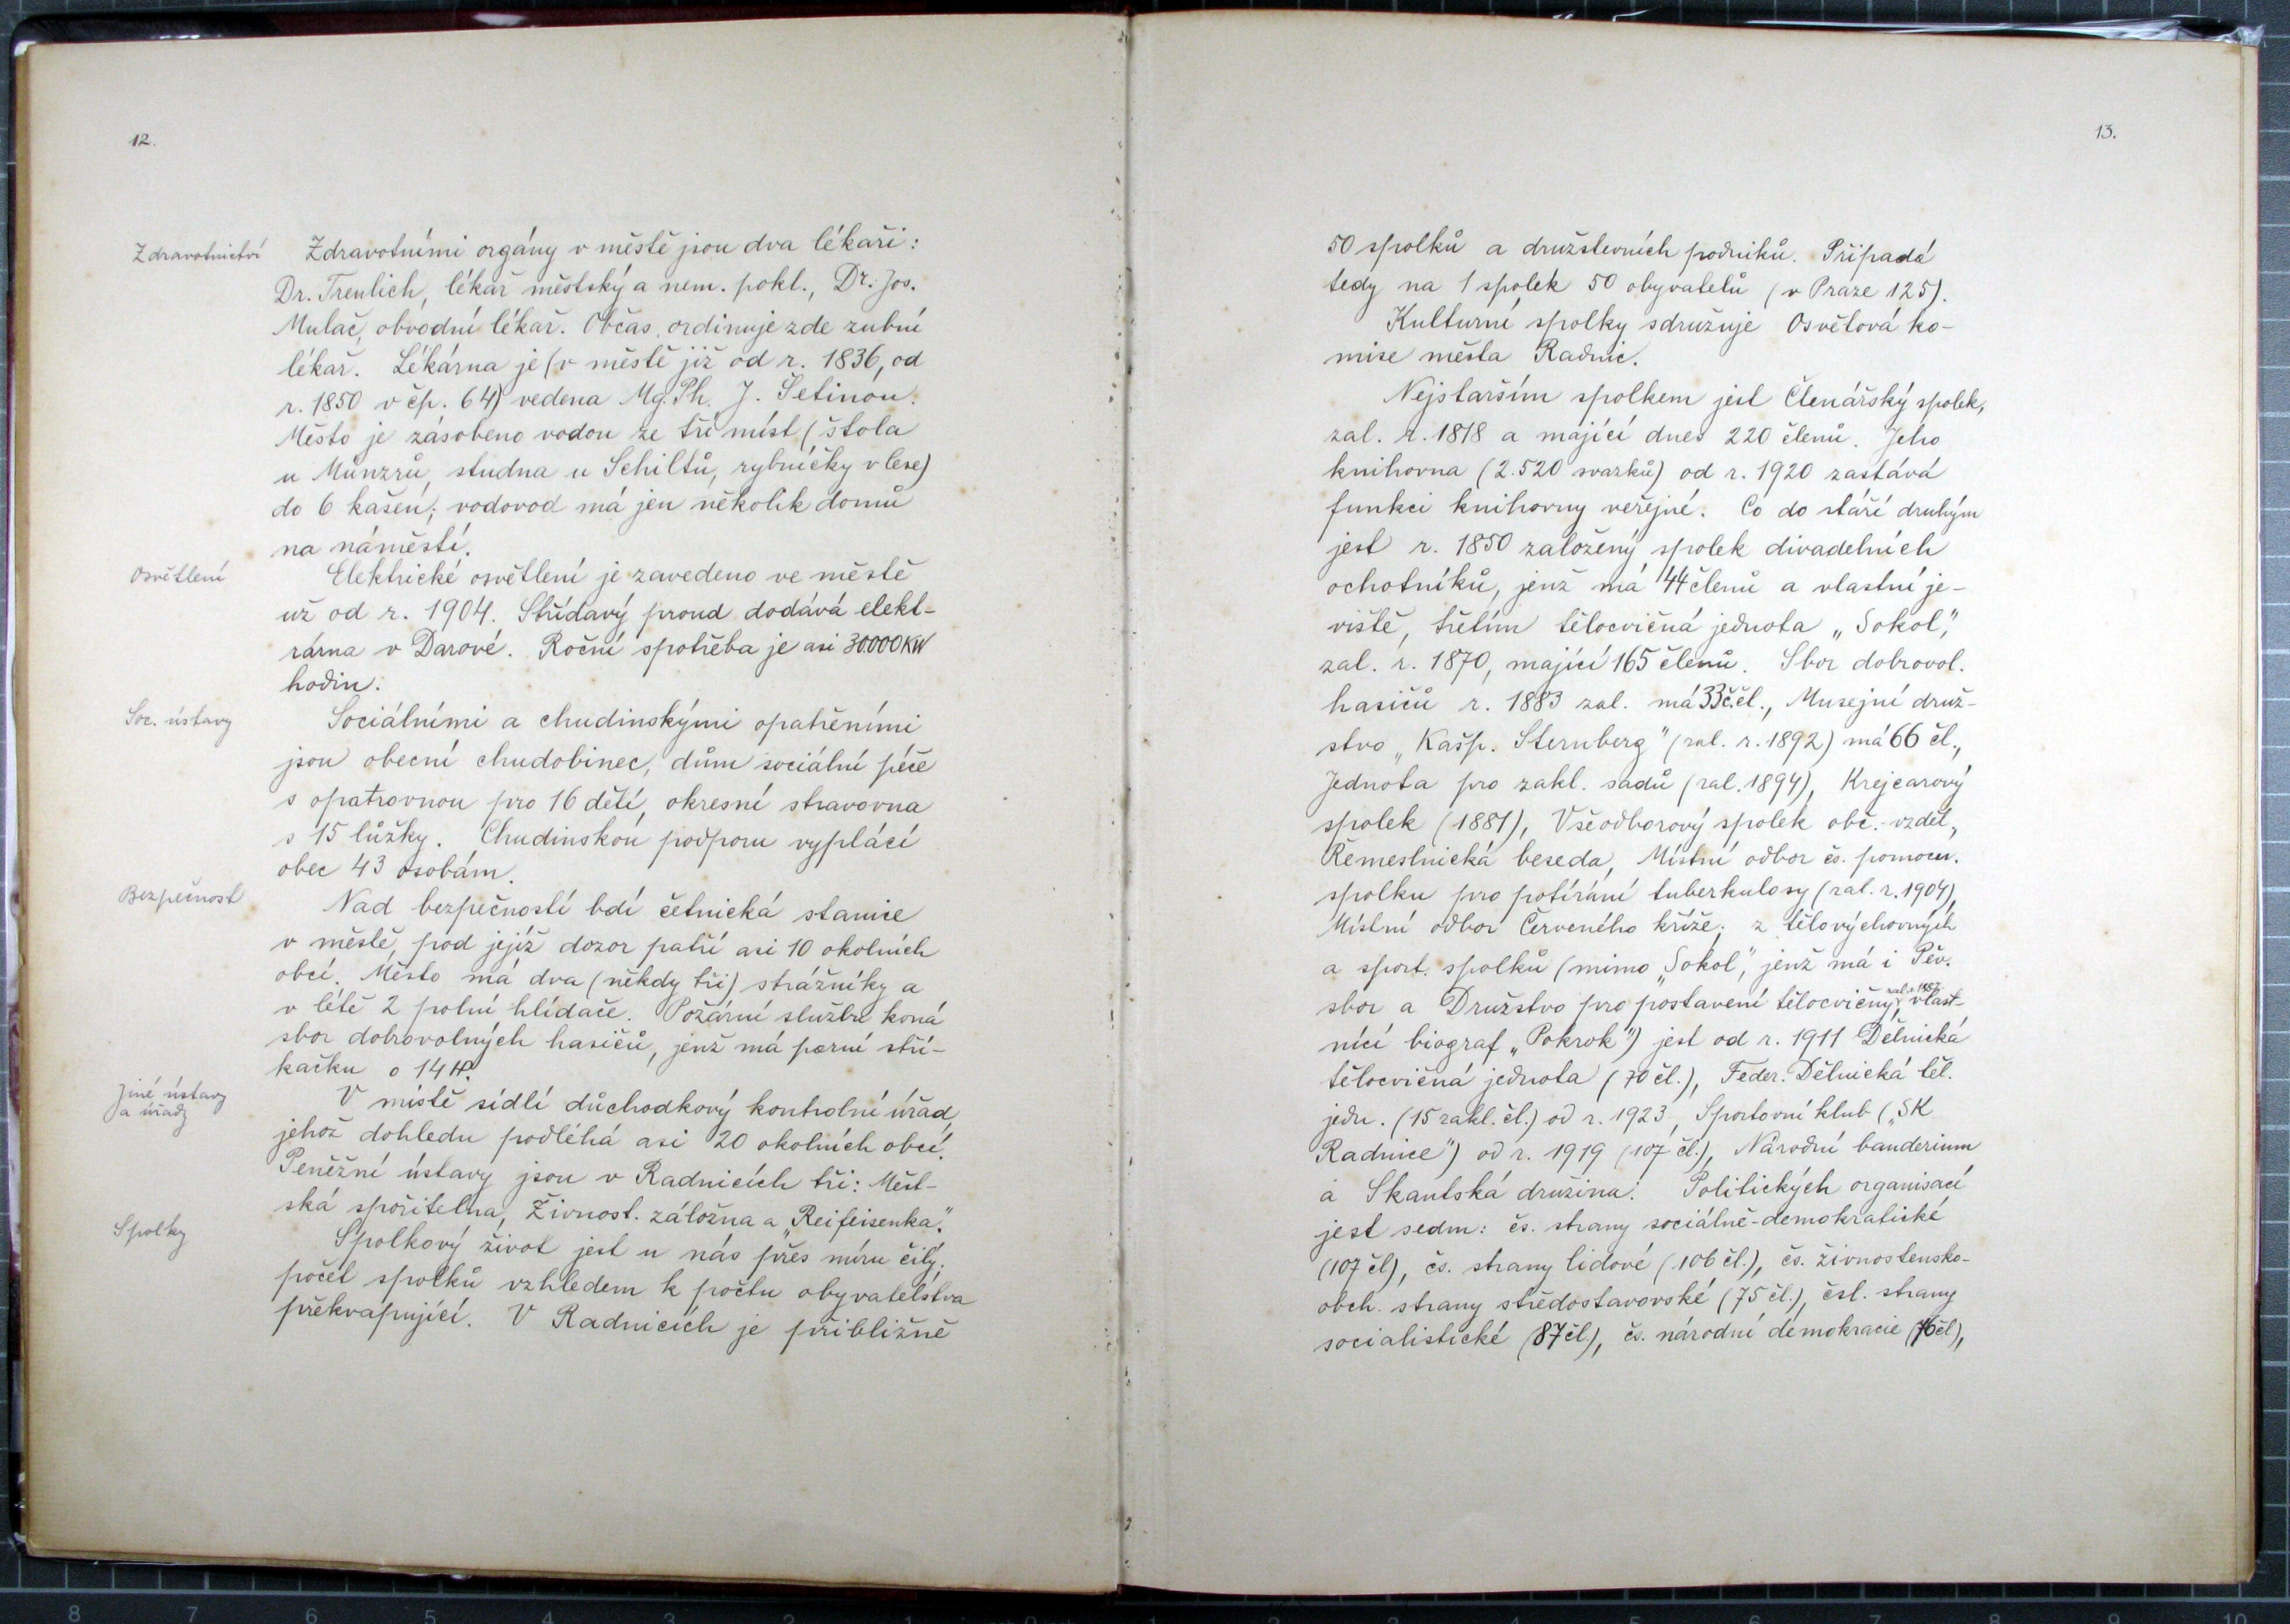 12.
Zdravotnictví
Zdravotními orgány v městě jsou dva lékaři:
Dr. Treulich, lékař městský a nem. pokl., Dr. Jos.
Mulač, obvodní lékař. Občas ordinuje zde zubní
lékař. Lékárna je (v městě již od r. 1836, od
r. 1850 v čp. 64) vedena Mg. Ph. J. Šetinou.
Město je zásobeno vodou ze tří míst (štola
u Münzrů, studna u Schiltů, rybníčky v lese)
do 6 kašen; vodovod má jen několik domů
na náměstí.
Osvětlení
Elektrické osvětlení je zavedeno ve městě
už od r. 1904. Střídavý proud dodává elekt-
rárna v Darové. Roční spotřeba je asi 30.000 KW
hodin.
Soc. ústavy
Sociálními a chudinskými opatřeními
jsou obecní chudobinec, dům sociální péče
s opatrovnou pro 16 dětí, okresní stravovna
s 15 lůžky. Chudinskou podporu vyplácí
obec 43 osobám.
Bezpečnost
Nad bezpečností bdí četnická stanice
v městě, pod jejíž dozor patří asi 10 okolních
obcí. Město má dva (někdy tři) strážníky a
v létě 2 polní hlídače. Požární službu koná
sbor dobrovolných hasičů, jenž má parní stří-
kačku o 14 HP.
Jiné ústavy
a úřady
V místě sídlí důchodkový kontrolní úřad,
jehož dohledu podléhá asi 20 okolních obcí.
Peněžní ústavy jsou v Radnicích tři: Měst-
ská spořitelna, Živnost. záložna a „Reifeisenka".
Spolky
Spolkový život jest u nás přes míru čilý;
počet spolků vzhledem k počtu obyvatelstva
překvapující. V Radnicích je přibližně
13.
50 spolků a družstevních podniků. Připadá
tedy na 1 spolek 50 obyvatelů (v Praze 125).
Kulturní spolky sdružuje Osvětová ko-
mise města Radnic.
Nejstarším spolkem jest Čtenářský spolek,
zal. r. 1818 a mající dnes 220 členů. Jeho
knihovna (2.520 svazků) od r. 1920 zastává
funkci knihovny veřejné. Co do stáří druhým
jest r. 1850 založený spolek divadelních
ochotníků, jenž má 44 členů a vlastní je-
viště, třetím tělocvičná jednota „Sokol",
zal. r. 1870, mající 165 členů. Sbor dobrovol.
hasičů r. 1883 zal. má 33 č. čl., Musejní druž-
stvo „Kašp. Sternberg" (zal. r. 1892) má 66 čl.,
Jednota pro zakl. sadů (zal. 1894), Krejcarový
spolek (1881), Všeodborový spolek obč.-vzděl.,
Řemeslnická beseda, Místní odbor čs. pomocn.
spolku pro potírání tuberkulosy (zal. r. 1904),
Místní odbor Červeného kříže; z tělovýchovných
a sport. spolků (mimo „Sokol", jenž má i Pěv.
sbor a Družstvo pro postavení tělocvičny, zal. r. 1887, vlast-
nící biograf „Pokrok") jest od r. 1911 Dělnická
tělocvičná jednota (70 čl.), Feder. Dělnická těl.
jedn. (15 zakl. čl.) od r. 1923, Sportovní klub („SK
Radnice") od r. 1919 (107 čl.), Národní banderium
a Skautská družina. Politických organisací
jest sedm: čs. strany sociálně-demokratické
(107 čl), čs. strany lidové (106 čl.), čs. živnostensko-
obch. strany středostavovské (75 čl.), čsl. strany
socialistické (87 čl.), čs. národní demokracie (76 čl),